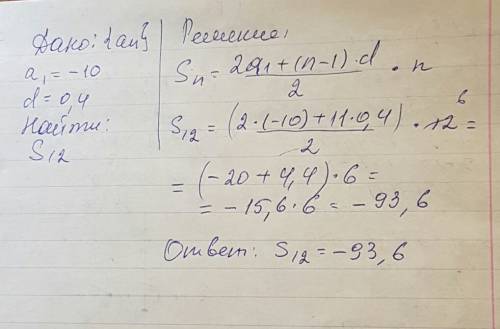 Дано: {an}
a₁ = -10
d = 0,4
Найти:
S₁₂
Решение:
Sn = (2a₁ + (n-1)·d)/2 · n
S₁₂ = (2·(-10) + 11·0,4)/2 · 12 ⁶ =
= (-20 + 4,4)·6 =
= -15,6·6 = -93,6
Ответ: S₁₂ = -93,6